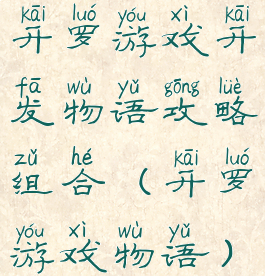 kāi luó yóu xì kāi
开罗游戏开
fā wù yǔ gōng lüè
发物语攻略
zǔ hé kāi luó
组合（开罗
yóu xì wù yǔ
游戏物语）